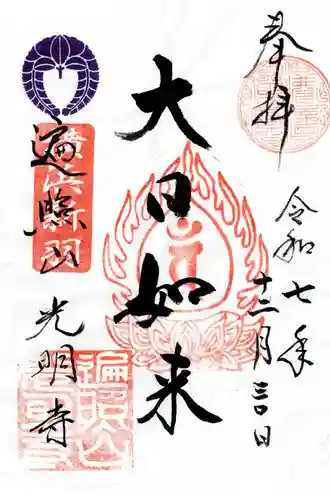 奉拝
令和七年
十二月三〇日
大日如来
横浜新羽
遍照山
光明寺
遍照山
光明寺